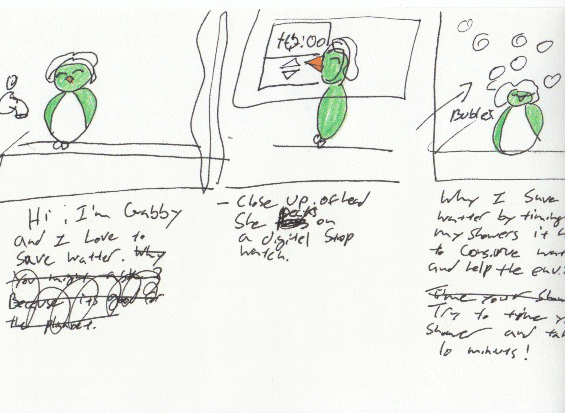 Hi, I'm Gabby
and I Love to
save watter. Why
You might ask ?
Because its good for
the planet.
- Close up of head
She pecks on
a digitel Stop
watch.
Bubles
Why I Save
watter by timing
my showers it
to Consirve
and help the
Time your
Try to time
Shower and
10 minuts!